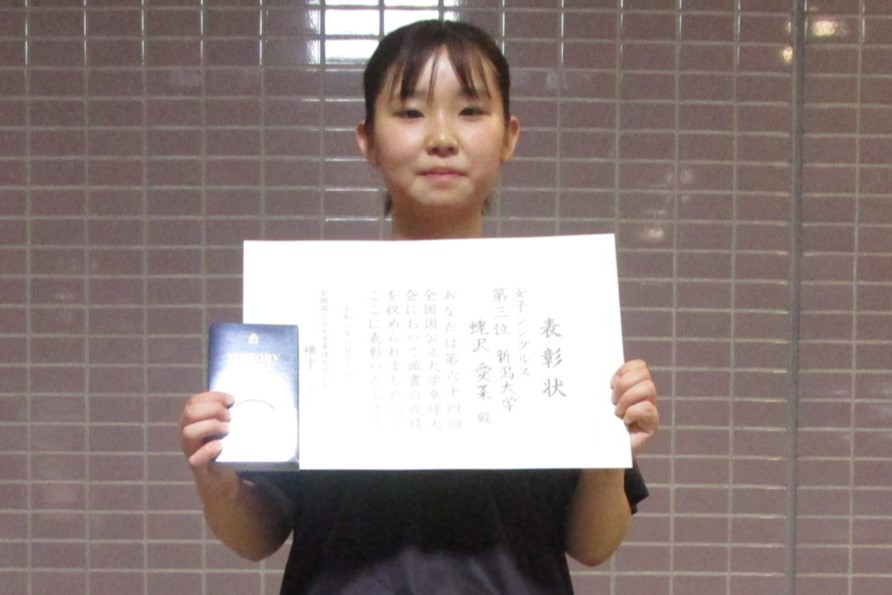 表彰状
女子シングルス
第三位 新潟大学
蛯沢 愛菜 殿
あなたは第六十四回
全国国公立大学卓球大
会において頭書の成績
を収められましたので
ここに表彰いたします
VICTORY